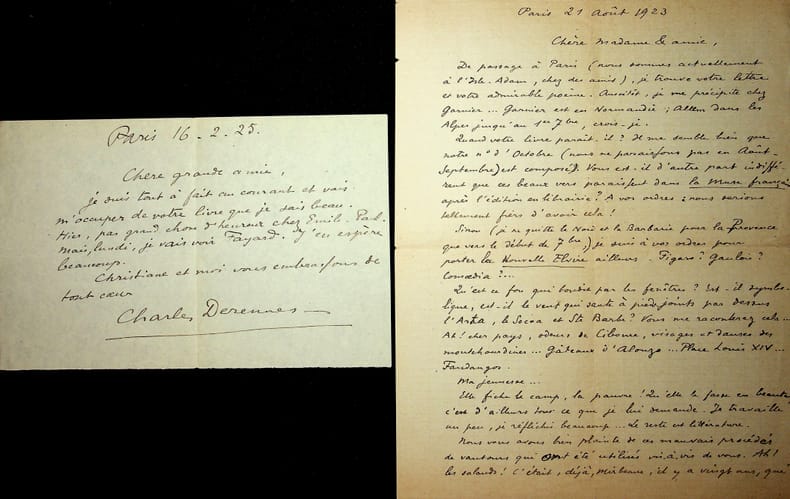 Paris 16-2-25.
Chère grande amie,
je suis tout à fait au courant et vais
m'occuper de votre livre que je sais beau.
Hier, pas grand chose d'heureux chez Emile-Paul.
mais, lundi, je vais voir Fayard. J'en espère
beaucoup.
Christiane et moi vous embrassons de
tout cœur
Charles Derennes
Paris 21 Août 1923
Chère Madame & amie,
De passage à Paris (nous sommes actuellement
à l'Isle-Adam, chez des amis), je trouve votre lettre
et votre admirable poème. Aussitôt, je me précipite chez
Garnier... Garnier est en Normandie ; Allem dans les
Alpes jusqu'au 1er 7bre, crois-je.
Quand votre livre paraît-il ? Il me semble bien que
notre n° d'Octobre (nous ne paraissons pas en Août-
Septembre) est composé. Vous est-il d'autre part indiffé-
rent que ces beaux vers paraissent dans la Muse français
après l'édition en librairie ? A vos ordres : nous serions
tellement fiers d'avoir cela !
Sinon (je ne quitte le Noir et la Barbarie pour la Provence
que vers le début de 7bre) je suis à vos ordres pour
porter la Nouvelle Elvire ailleurs. Figaro ? Gaulois ?
Comœdia ?...
Qu'est ce fou qui boudie par les fenêtres ? Est-il symbo-
lique, est-il le vent qui saute à pieds joints par dessus
l'Artha, le Socoa et Ste Barbe ? Vous me raconterez cela...
Ah ! cher pays, odeurs de Ciboure, visages et danses des
... Gâteaux d'Alonzo... Place Louis XIV...
Fandangos.
Ma jeunesse...
Elle fiche le camp, la pauvre ! Qu'elle le fasse en beauté
c'est d'ailleurs tout ce que je lui demande. Je travaille
un peu, je réfléchis beaucoup... Le reste est littérature.
Nous vous avons bien plainte de ces mauvais procédés
de vautours qui ont été utilisés vis-à-vis de vous. Ah !
les salauds ! C'était, déjà, Mirbeau, il y a vingt ans, que